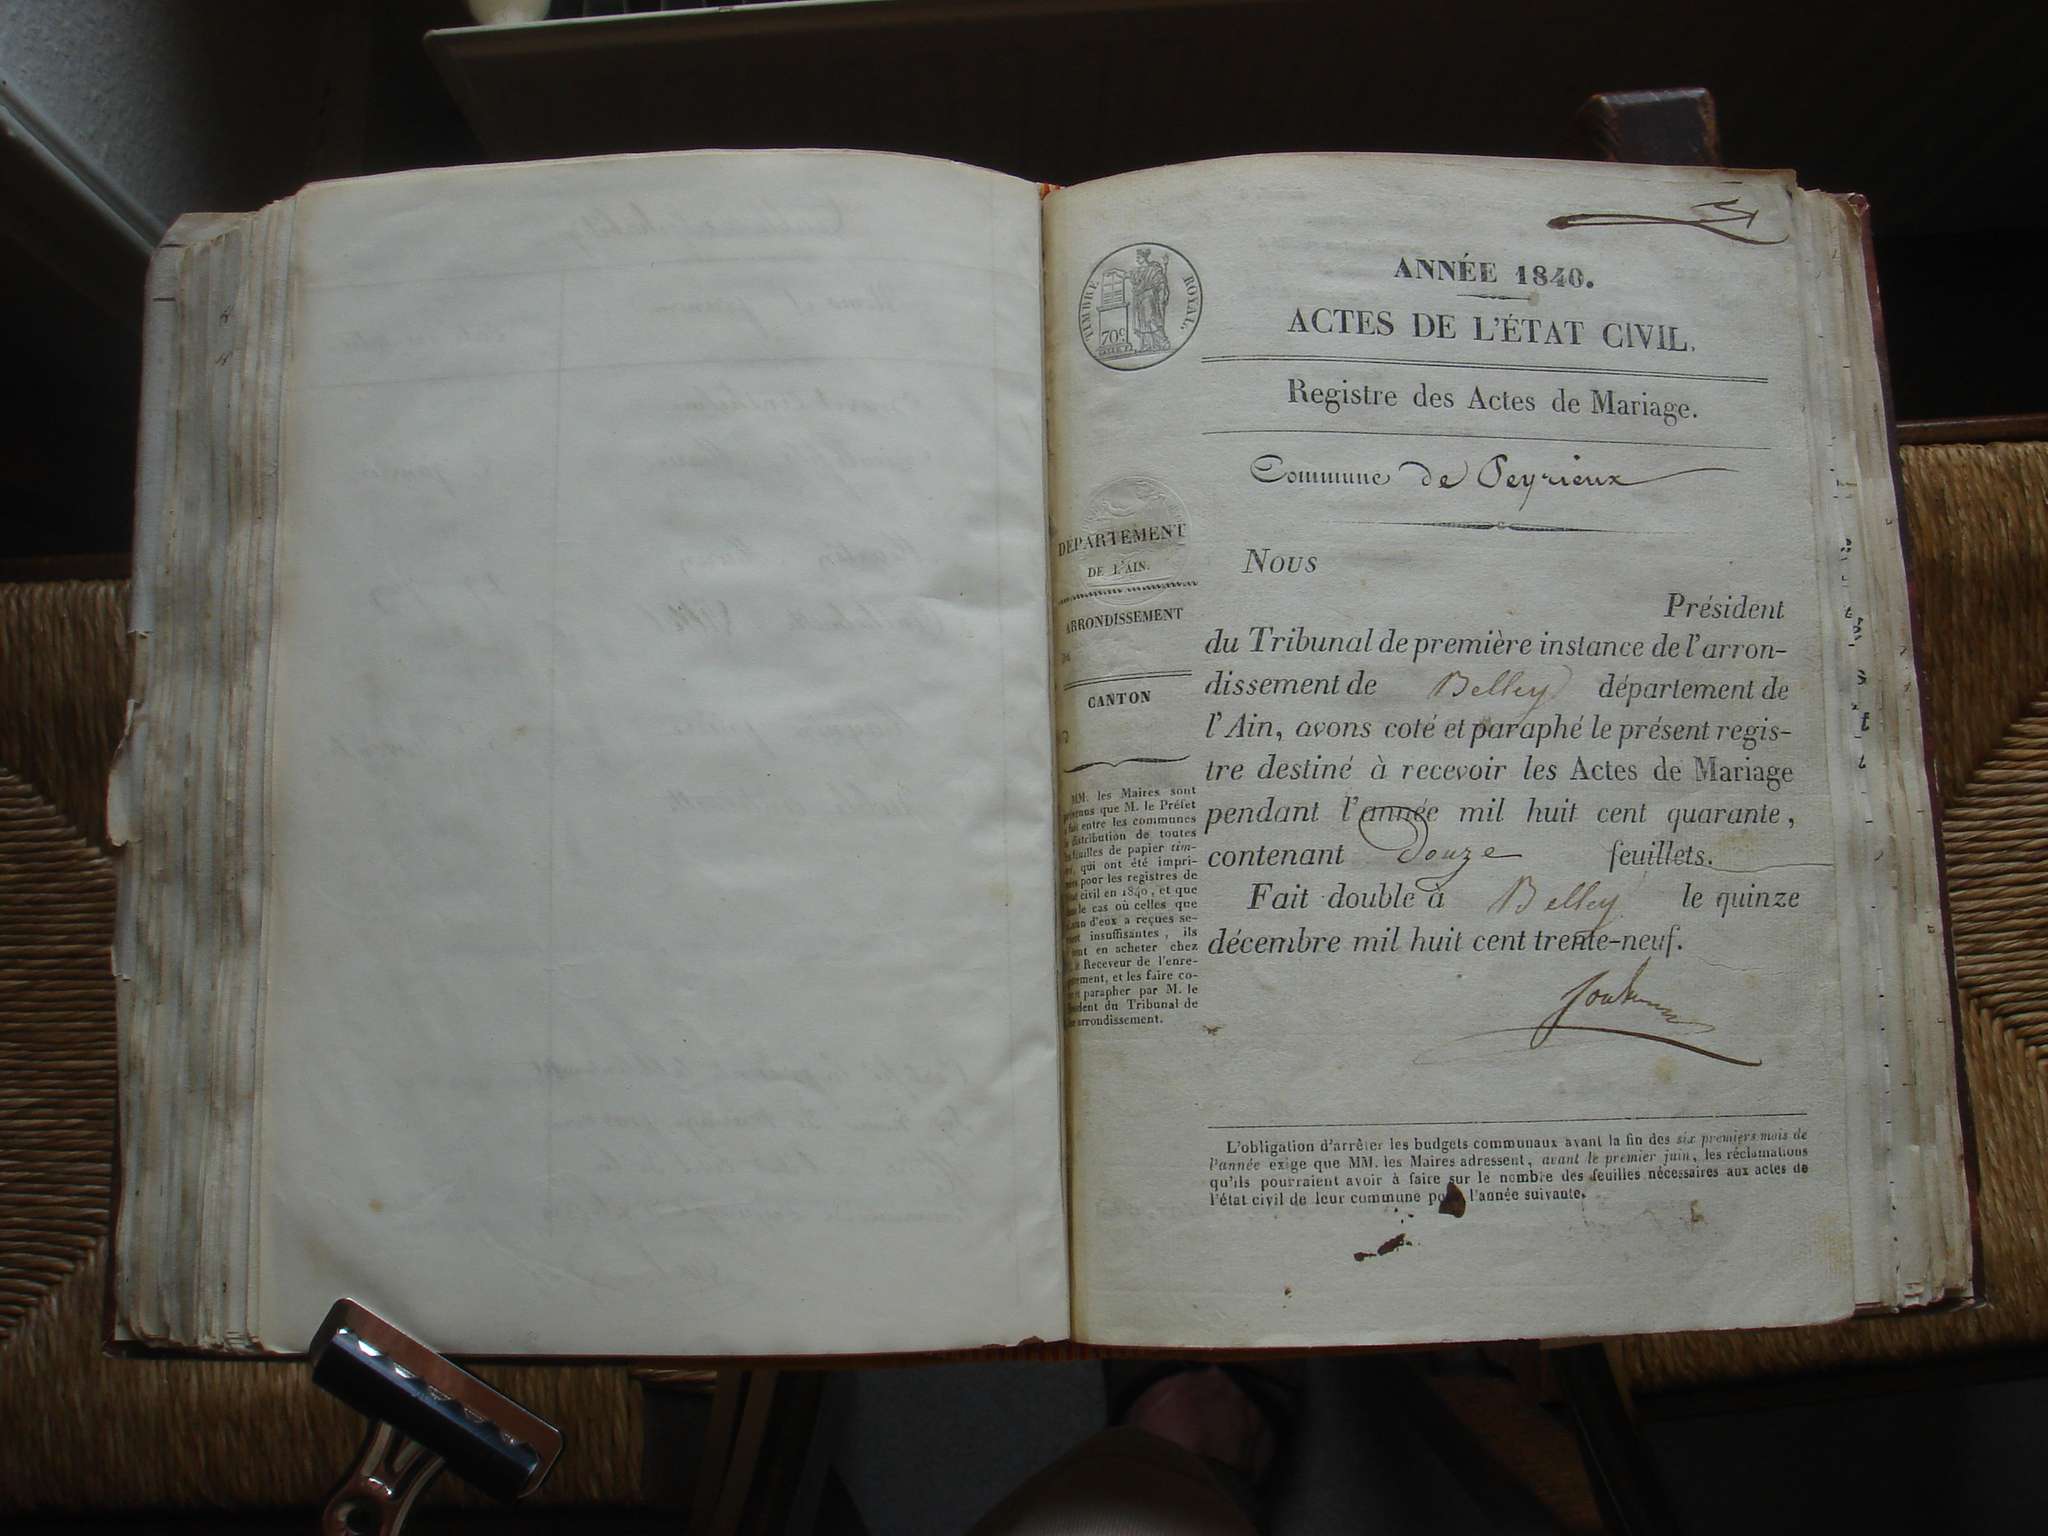 ANNÉE 1840.
ACTES DE L'ÉTAT CIVIL.
Registre des Actes de Mariage.
Commune de Peyrieux
TIMBRE ROYAL.
70c.
DÉPARTEMENT
DE L'AIN.
ARRONDISSEMENT
CANTON
MM. les Maires sont
que M. le Préfet
fait entre les communes
distribution de toutes
feuilles de papier tim-
qui ont été impri-
pour les registres de
civil en 1840, et que
le cas où celles que
d'eux a reçues se-
insuffisantes, ils
en acheter chez
Receveur de l'enre-
et les faire co-
parapher par M. le
du Tribunal de
arrondissement.
Nous
Président
du Tribunal de première instance de l'arron-
dissement de Belley département de
l'Ain, avons coté et paraphé le présent regis-
tre destiné à recevoir les Actes de Mariage
pendant l'année mil huit cent quarante,
contenant douze feuillets.
Fait double à Belley le quinze
décembre mil huit cent trente-neuf.
L'obligation d'arrêter les budgets communaux avant la fin des six premiers mois de
l'année exige que MM. les Maires adressent, avant le premier juin, les réclamations
qu'ils pourraient avoir à faire sur le nombre des feuilles nécessaires aux actes de
l'état civil de leur commune pour l'année suivante.